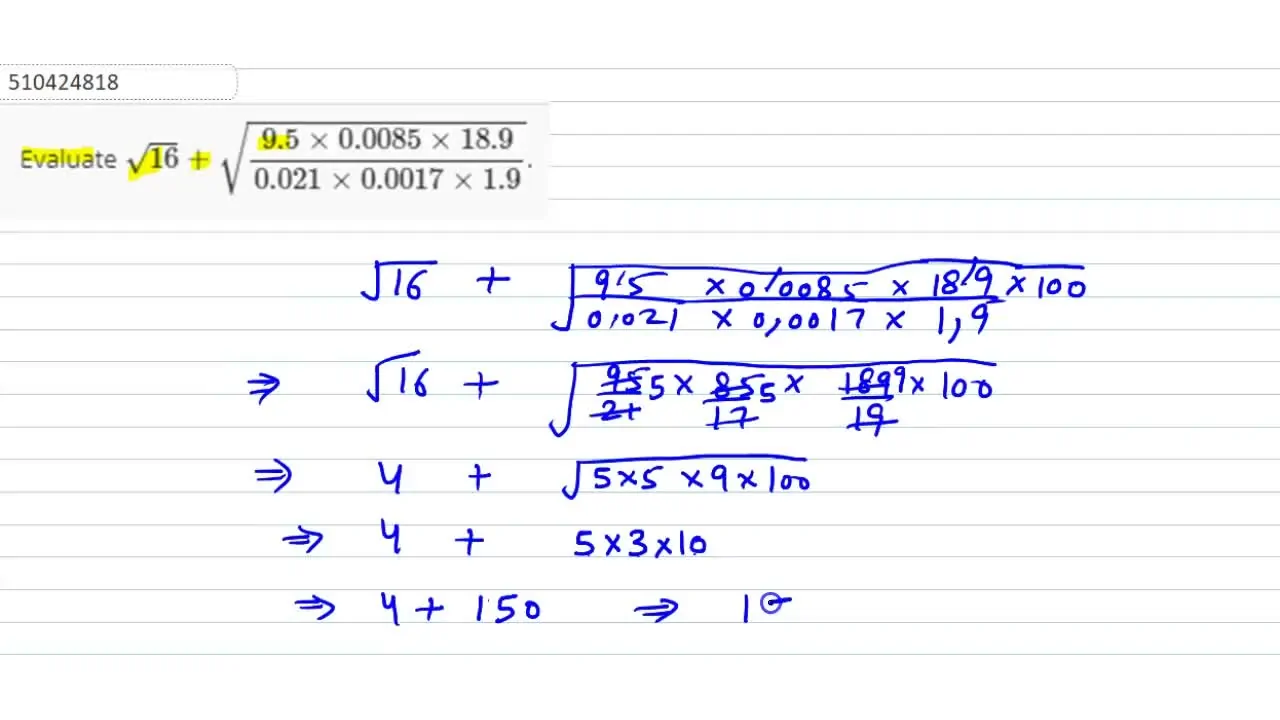 510424818
Evaluate √16 + √(9.5 × 0.0085 × 18.9 / 0.021 × 0.0017 × 1.9).
√16 + √(9.5 × 0.0085 × 18.9 × 100 / 0.021 × 0.0017 × 1.9)
⇒ √16 + √(95/21 5 × 85/17 5 × 189/19 9 × 100)
⇒ 4 + √(5×5 ×9×100)
⇒ 4 + 5×3×10
⇒ 4 + 150 ⇒ 1